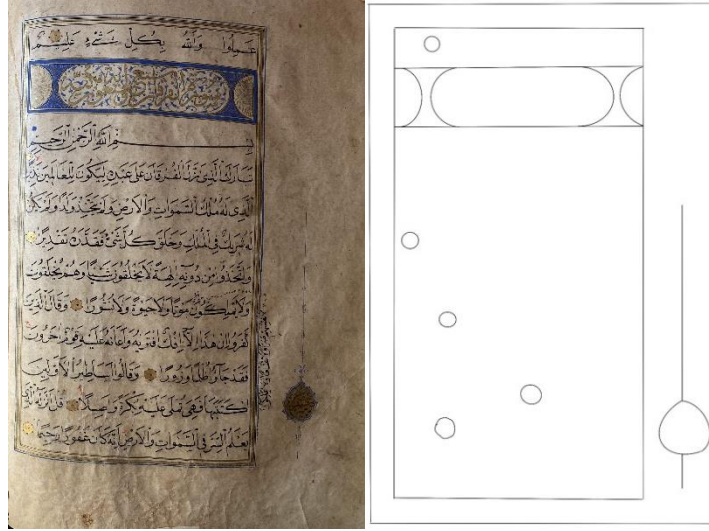 عملوا والله بكل شيء عليم
بسم الله الرحمن الرحيم
تبارك الذي نزل الفرقان على عبده ليكون للعالمين نذيرا
الذي له ملك السموات والارض ولم يتخذ ولدا ولم يكن
له شريك في الملك وخلق كل شيء فقدره تقديرا
واتخذوا من دونه الهة لا يخلقون شيئا وهم يخلقون
ولا يملكون موتا ولا حيوة ولا نشورا وقال الذين
كفروا ان هذا الا افك افتريه واعانه عليه قوم اخرون
فقد جاؤ ظلما وزورا وقالوا اساطير الاولين
اكتتبها فهي تملى عليه بكرة واصيلا قل انزله الذي
يعلم السر في السموات والارض انه كان غفورا رحيما